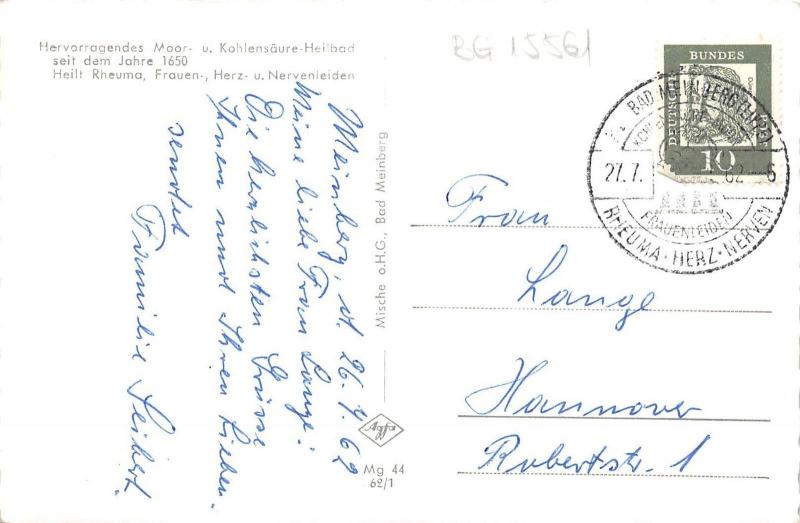 Hervorragendes Moor- u. Kohlensäure-Heilbad
seit dem Jahre 1650
Heilt Rheuma, Frauen-, Herz- u. Nervenleiden
BG 15561
Meinberg, d. 26.7.62
Meine liebe Frau Lange!
Die herzlichsten Grüsse
Ihnen und Ihren Lieben
sendet
Familie Seibert.
Mische o.H.G., Bad Meinberg
Agfa
Mg 44
62/1
DEUTSCHE
BUNDES
10
BAD MEINBERG (LIPPE)
27.7. 62-6
FRAUENLEIDEN
RHEUMA·HERZ·NERVEN
Frau
Lange
Hannover
Robertstr. 1